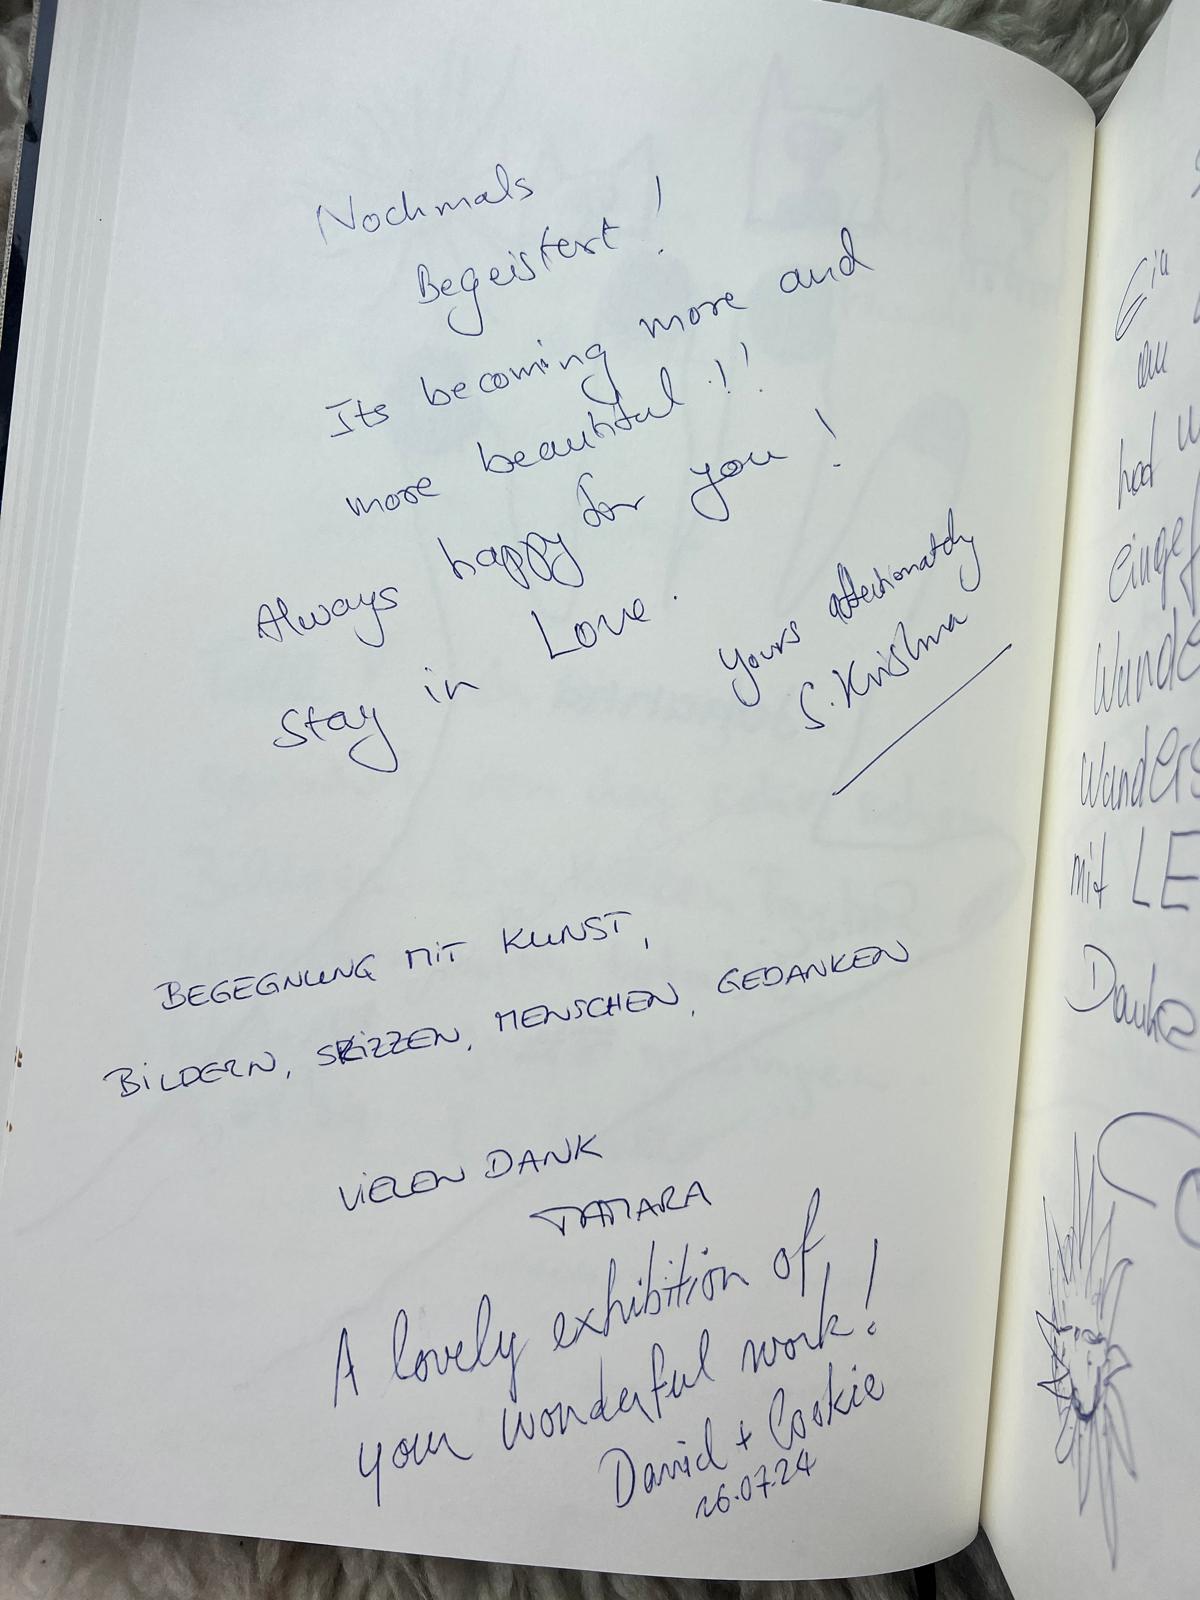 Nochmals
Begeistert!
Its becoming more and
more beautiful!!
Always happy for you!
Stay in Love.
Yours affectionately
S. Krishna
BEGEGNUNG MIT KUNST,
BILDERN, SKIZZEN, MENSCHEN, GEDANKEN
VIELEN DANK
TAMARA
A lovely exhibition of
your wonderful work!
David + Cookie
26.07.24
Ein
am
hat
eingef
Wunde
Wunders
mit LE
Danke